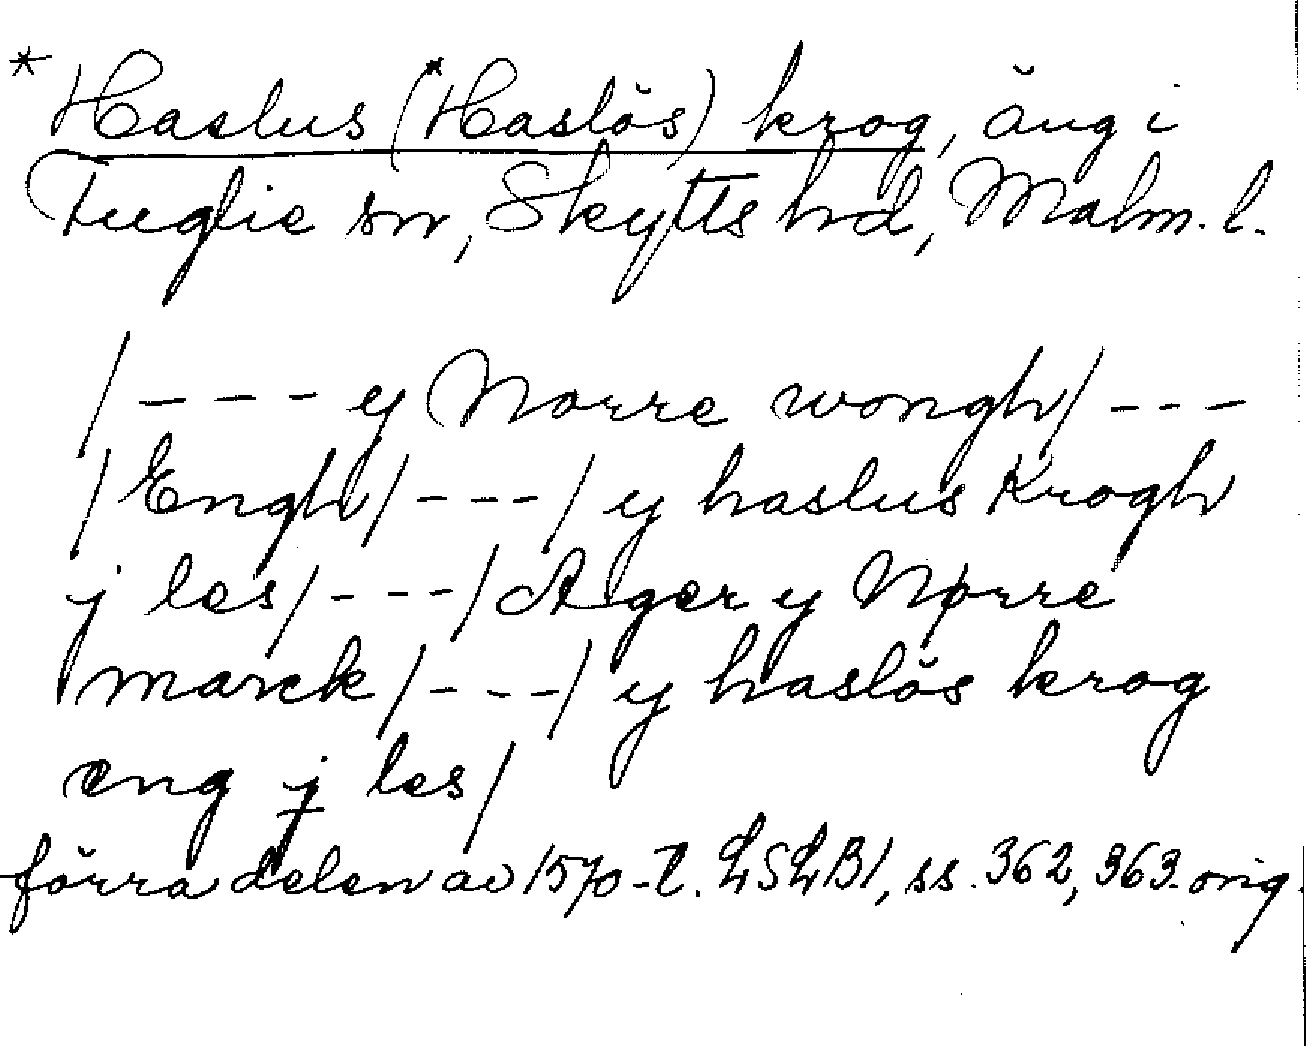 * Haslus (*Haslös) krog, äng i
Fuglie sn, Skytts hd, Malm. l.
/--- y Norre wongh/---
/Engh/---/ y haslus Krogh
j les/---/ Ager y Nørre
marck/---/ y haslös krog
eng j les/
förra delen av 1570-t. LSLB1, ss. 362, 363. orig.